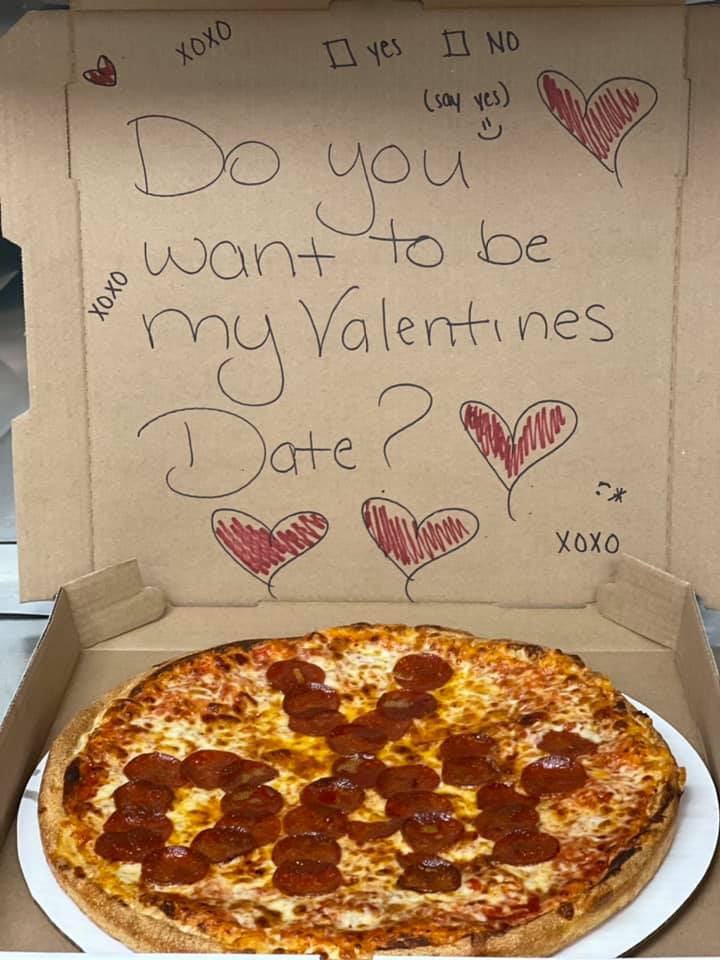 XOXO
☐ yes ☐ NO
(say yes)
Do you
want to be
XOXO
my Valentines
Date?
XOXO